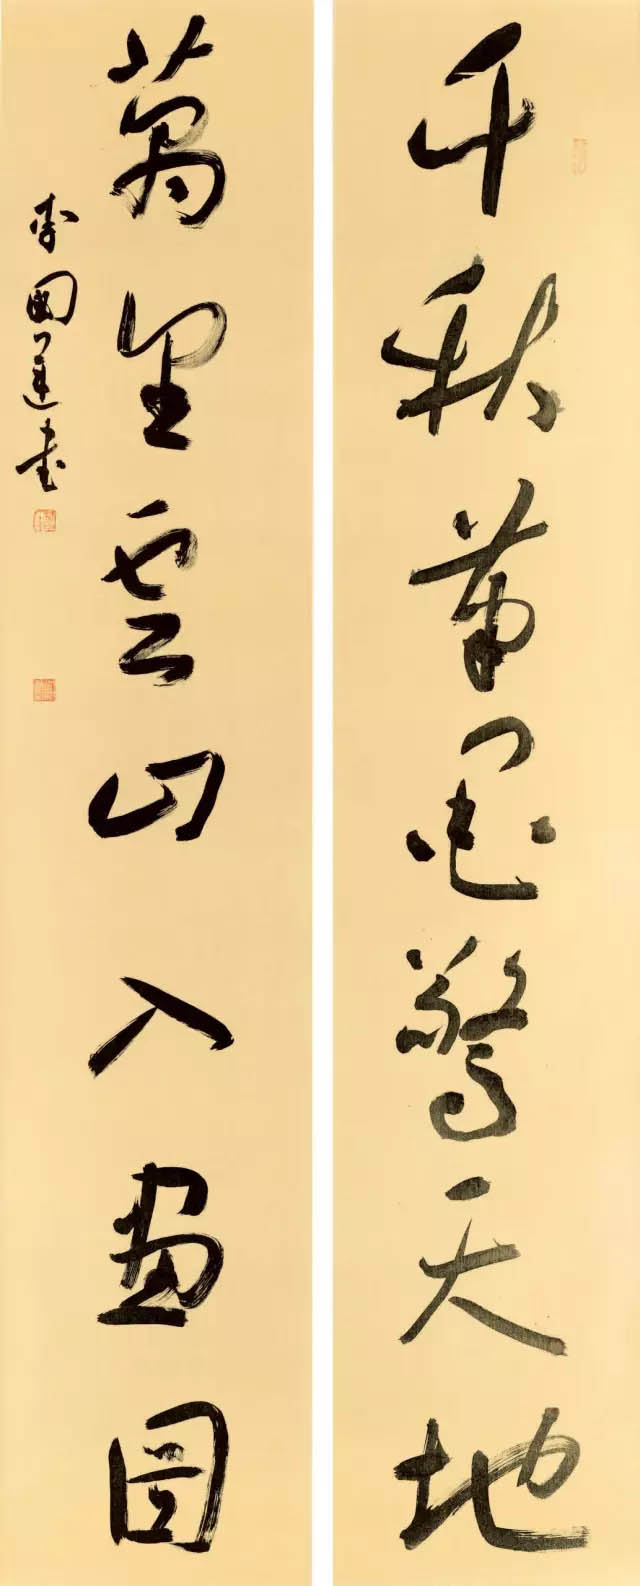 千秋筆墨驚天地
萬里雲山入畫圖
李國書